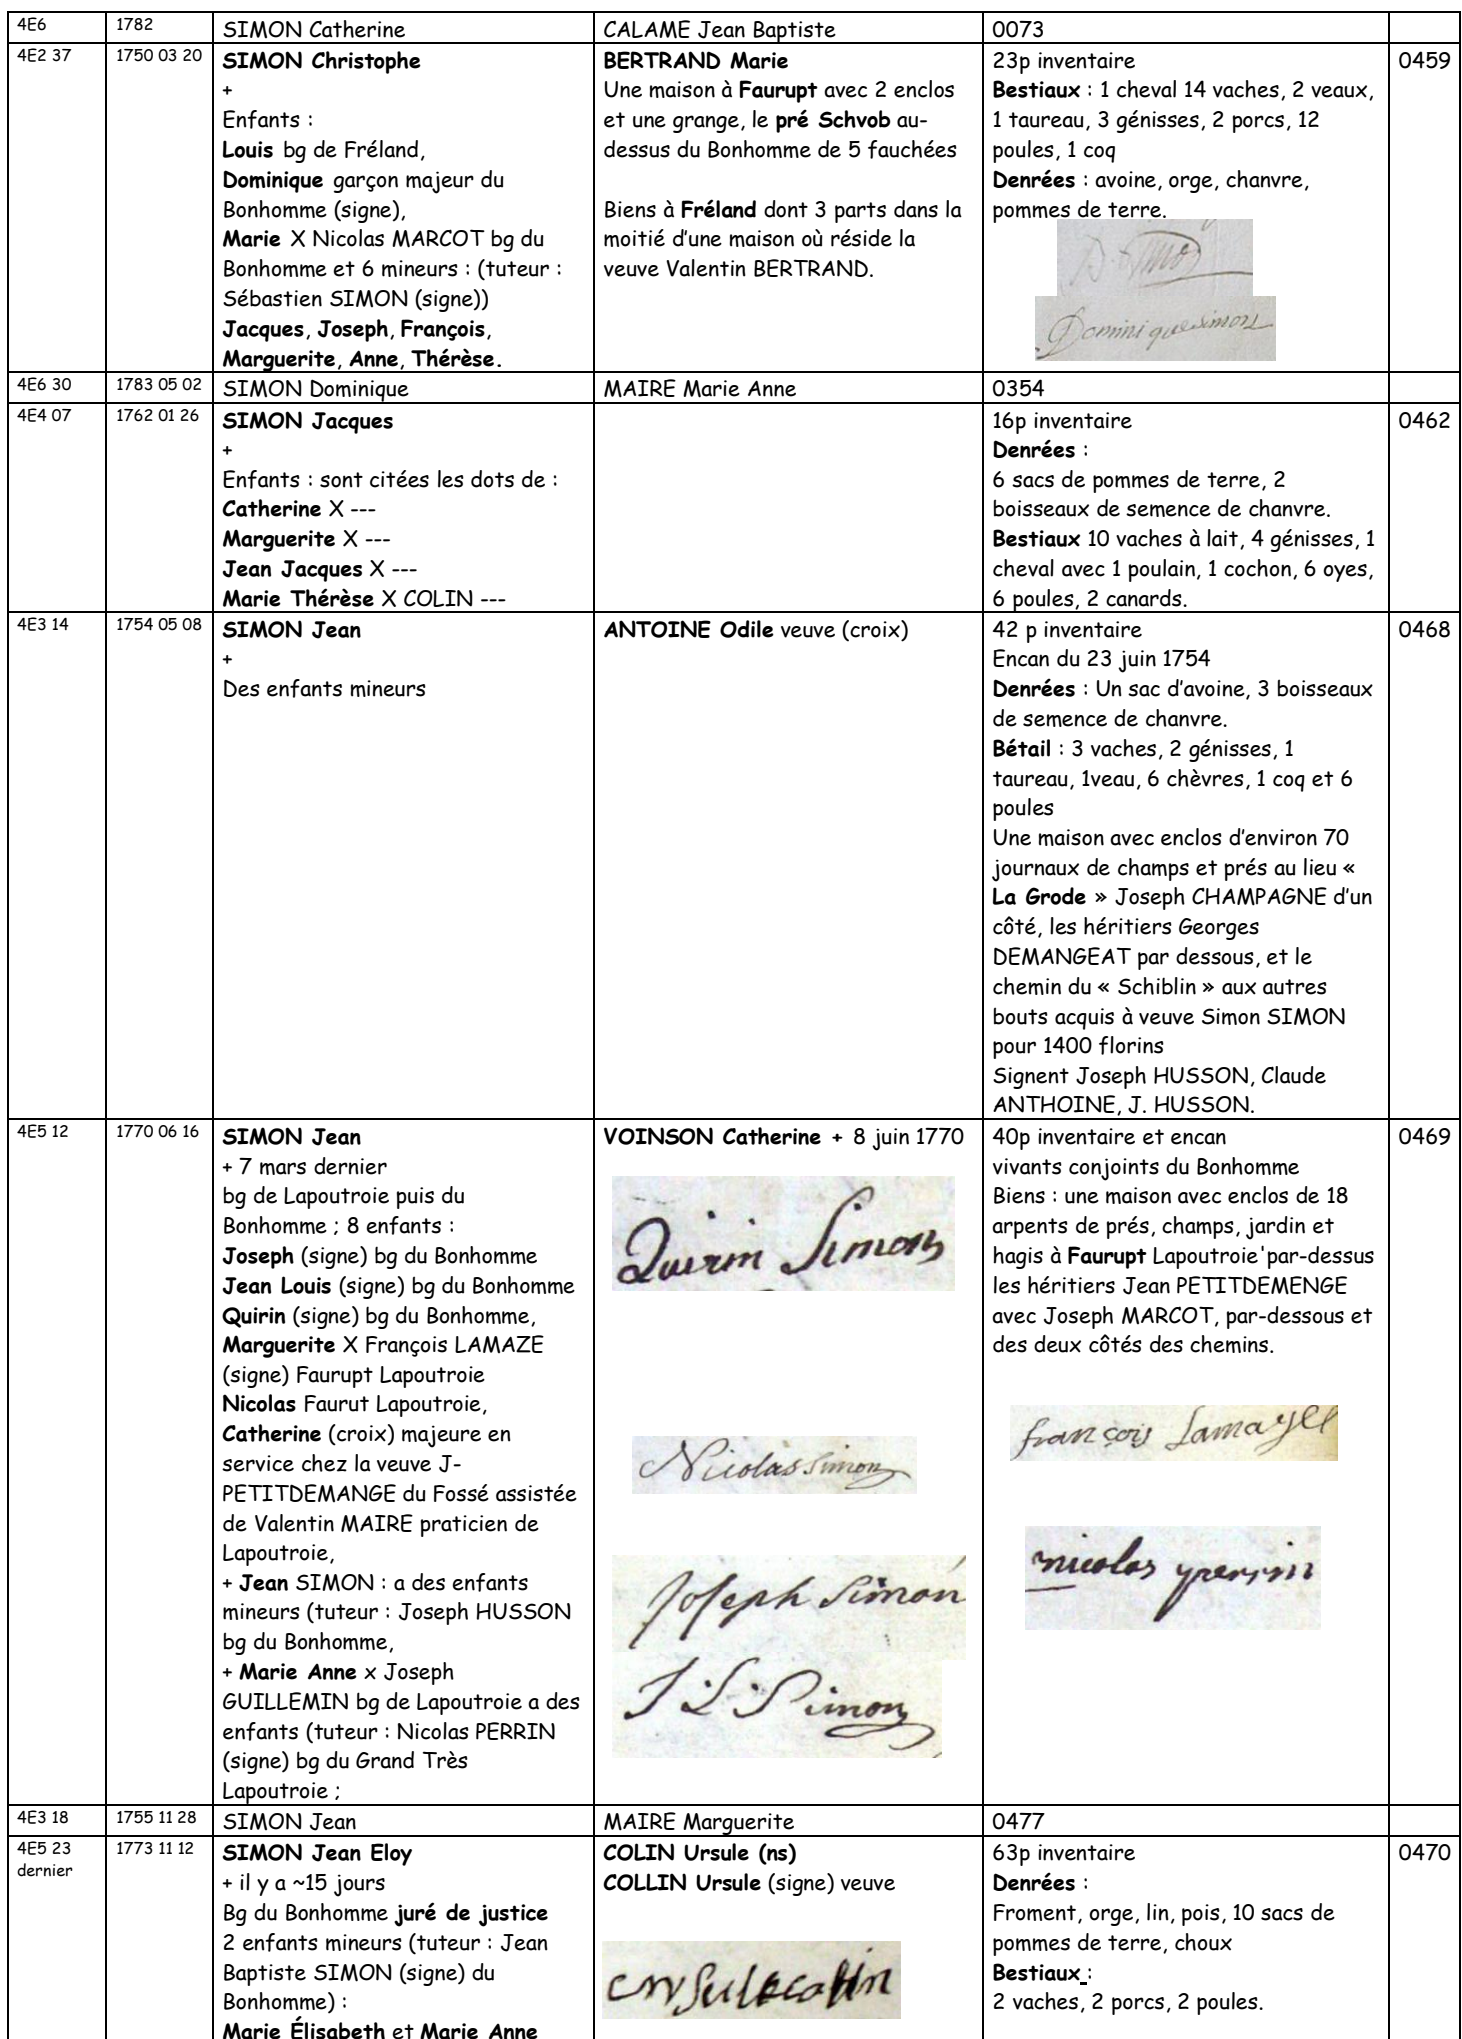 4E6 1782 SIMON Catherine CALAME Jean Baptiste 0073
4E2 37 1750 03 20
SIMON Christophe
+
Enfants :
Louis bg de Fréland,
Dominique garçon majeur du
Bonhomme (signe),
Marie X Nicolas MARCOT bg du
Bonhomme et 6 mineurs : (tuteur :
Sébastien SIMON (signe))
Jacques, Joseph, François,
Marguerite, Anne, Thérèse.
BERTRAND Marie
Une maison à Faurupt avec 2 enclos
et une grange, le pré Schvob au-
dessus du Bonhomme de 5 fauchées
Biens à Fréland dont 3 parts dans la
moitié d'une maison où réside la
veuve Valentin BERTRAND.
23p inventaire
Bestiaux : 1 cheval 14 vaches, 2 veaux,
1 taureau, 3 génisses, 2 porcs, 12
poules, 1 coq
Denrées : avoine, orge, chanvre,
pommes de terre.
Dominique simon
0459
4E6 30 1783 05 02 SIMON Dominique MAIRE Marie Anne 0354
4E4 07 1762 01 26
SIMON Jacques
+
Enfants : sont citées les dots de :
Catherine X ---
Marguerite X ---
Jean Jacques X ---
Marie Thérèse X COLIN ---
16p inventaire
Denrées :
6 sacs de pommes de terre, 2
boisseaux de semence de chanvre.
Bestiaux 10 vaches à lait, 4 génisses, 1
cheval avec 1 poulain, 1 cochon, 6 oyes,
6 poules, 2 canards.
0462
4E3 14 1754 05 08
SIMON Jean
+
Des enfants mineurs
ANTOINE Odile veuve (croix)
42 p inventaire
Encan du 23 juin 1754
Denrées : Un sac d'avoine, 3 boisseaux
de semence de chanvre.
Bétail : 3 vaches, 2 génisses, 1
taureau, 1veau, 6 chèvres, 1 coq et 6
poules
Une maison avec enclos d'environ 70
journaux de champs et prés au lieu «
La Grode » Joseph CHAMPAGNE d'un
côté, les héritiers Georges
DEMANGEAT par dessous, et le
chemin du « Schiblin » aux autres
bouts acquis à veuve Simon SIMON
pour 1400 florins
Signent Joseph HUSSON, Claude
ANTHOINE, J. HUSSON.
0468
4E5 12 1770 06 16
SIMON Jean
+ 7 mars dernier
bg de Lapoutroie puis du
Bonhomme ; 8 enfants :
Joseph (signe) bg du Bonhomme
Jean Louis (signe) bg du Bonhomme
Quirin (signe) bg du Bonhomme,
Marguerite X François LAMAZE
(signe) Faurupt Lapoutroie
Nicolas Faurut Lapoutroie,
Catherine (croix) majeure en
service chez la veuve J-
PETITDEMANGE du Fossé assistée
de Valentin MAIRE praticien de
Lapoutroie,
+ Jean SIMON : a des enfants
mineurs (tuteur : Joseph HUSSON
bg du Bonhomme,
+ Marie Anne x Joseph
GUILLEMIN bg de Lapoutroie a des
enfants (tuteur : Nicolas PERRIN
(signe) bg du Grand Très
Lapoutroie ;
VOINSON Catherine + 8 juin 1770
Quirin Simon
Nicolas simon
Joseph Simon
J L Simon
40p inventaire et encan
vivants conjoints du Bonhomme
Biens : une maison avec enclos de 18
arpents de prés, champs, jardin et
hagis à Faurupt Lapoutroie'par-dessus
les héritiers Jean PETITDEMENGE
avec Joseph MARCOT, par-dessous et
des deux côtés des chemins.
françois
nicolas perrin
0469
4E3 18 1755 11 28 SIMON Jean MAIRE Marguerite 0477
4E5 23
dernier
1773 11 12
SIMON Jean Eloy
+ il y a ~15 jours
Bg du Bonhomme juré de justice
2 enfants mineurs (tuteur : Jean
Baptiste SIMON (signe) du
Bonhomme) :
Marie Élisabeth et Marie Anne
COLIN Ursule (ns)
COLLIN Ursule (signe) veuve
63p inventaire
Denrées :
Froment, orge, lin, pois, 10 sacs de
pommes de terre, choux
Bestiaux :
2 vaches, 2 porcs, 2 poules.
0470